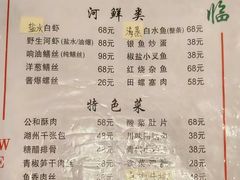 河鲜类
临
盐水白虾 68元
清蒸白水鱼(整条) 68元
野生河虾(盐水/油爆) 88元
银鱼炒蛋 38元
响油鳝丝(纯鳝丝) 98元
椒盐小叉鱼 38元
洋葱鳝丝 68元
红烧杂鱼 58元
酱爆螺丝 26元
田螺塞肉 58元
特色菜
公和酥肉 58元
酸菜肚片
湖州千张包 48元
糖醋排骨
青椒笋干肉丝
鱼香肉丝